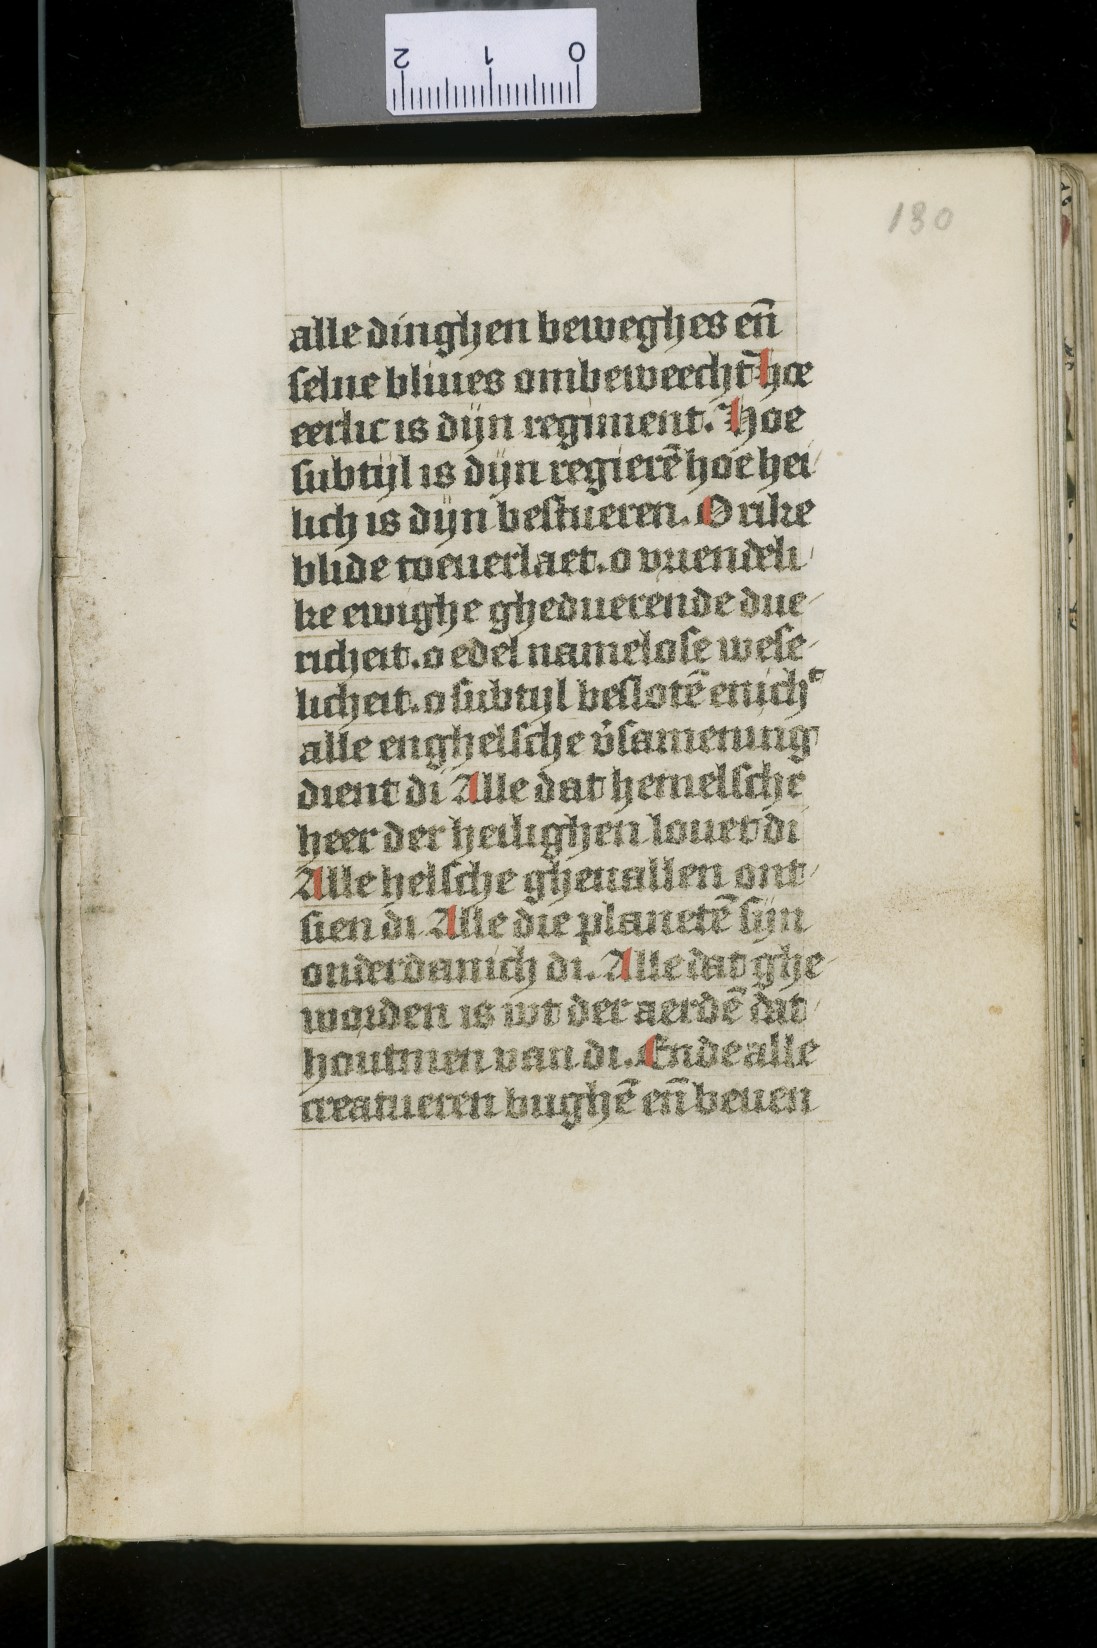 2 1 0
130
alle dinghen beweghes en̄
selue bliues ombeweecht hoe
eerlic is dijn regiment. Hoe
subtijl is dijn regierē hoe hei
lich is dijn bestueren. O rike
blide toeuerlaet. o vriendeli
ke ewighe gheduerende due
richeit. o edel namelose wese
licheit. o subtijl beslotē enichᵗ
alle enghelsche v̓samening
dient di Alle dat hemelsche
heer der heilighen louet di
Alle helsche gheuallen ont
sien di Alle die planetē sijn
onderdanich di. Alle dat ghe
worden is wt der aerdē dat
hout men van di. Ende alle
creatueren bughē en̄ beuen